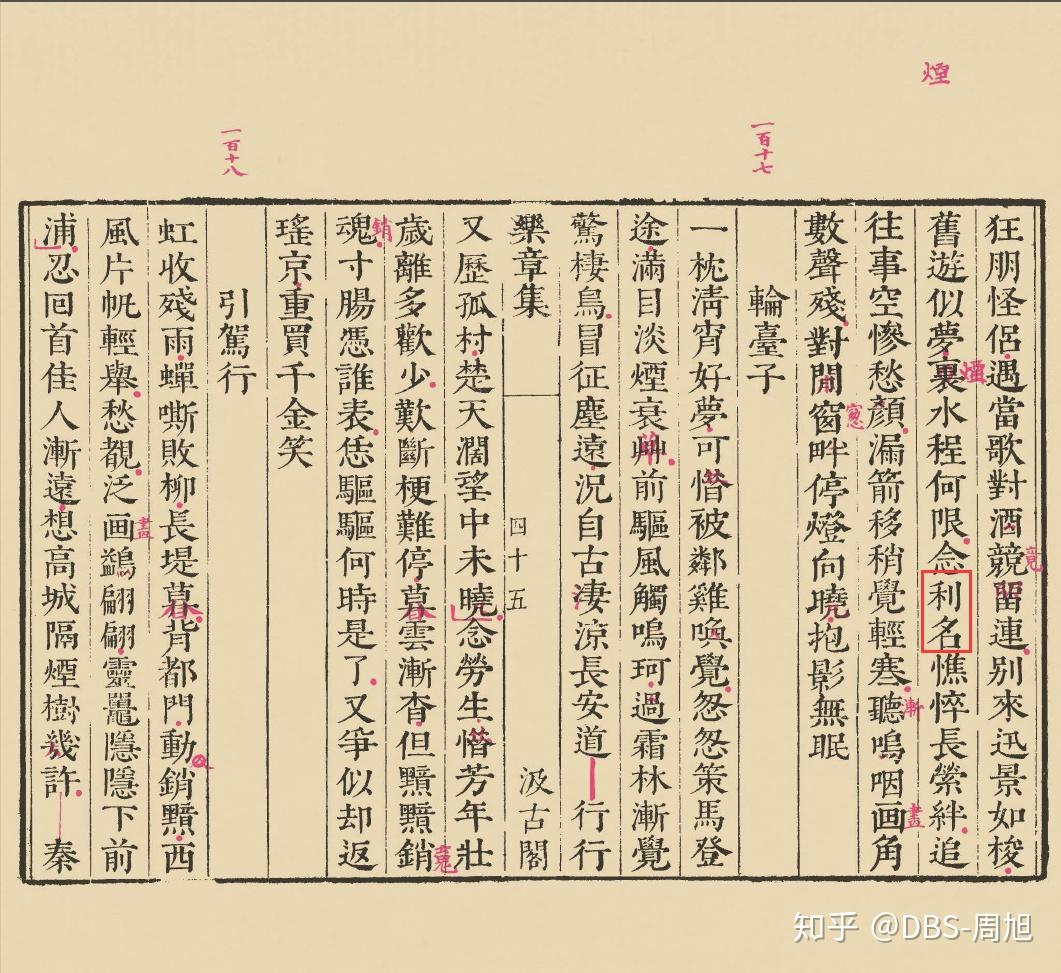 狂朋怪侶遇當歌對酒競留連别來迅景如梭
舊遊似夢裏水程何限念利名憔悴長縈絆追
往事空慘愁顔漏箭移稍覺輕寒聽嗚咽画角
數聲殘對閒窗畔停燈向曉抱影無眠
輪臺子
一枕淸宵好夢可惜被鄰雞喚覺怱怱策馬登
途滿目淡煙衰艸前驅風觸鳴珂過霜林漸覺
驚棲鳥冒征塵遠況自古凄涼長安道行行
樂章集
四十五
汲古閣
又歷孤村楚天濶望中未曉念勞生惜芳年壯
歲離多歡少歎斷梗難停暮雲漸杳但黯黯銷
魂寸腸憑誰表恁驅驅何時是了又爭似却返
瑤京重買千金笑
引駕行
虹收殘雨蟬嘶敗柳長堤暮背都門動銷黯西
風片帆輕舉愁覩泛画鷁翩翩靈鼉隱隱下前
浦忍回首佳人漸遠想高城隔煙樹幾許秦
煙
一百十七
一百十八
煙
竟
漸
畫
窻
銷
畫
知乎 @DBS-周旭